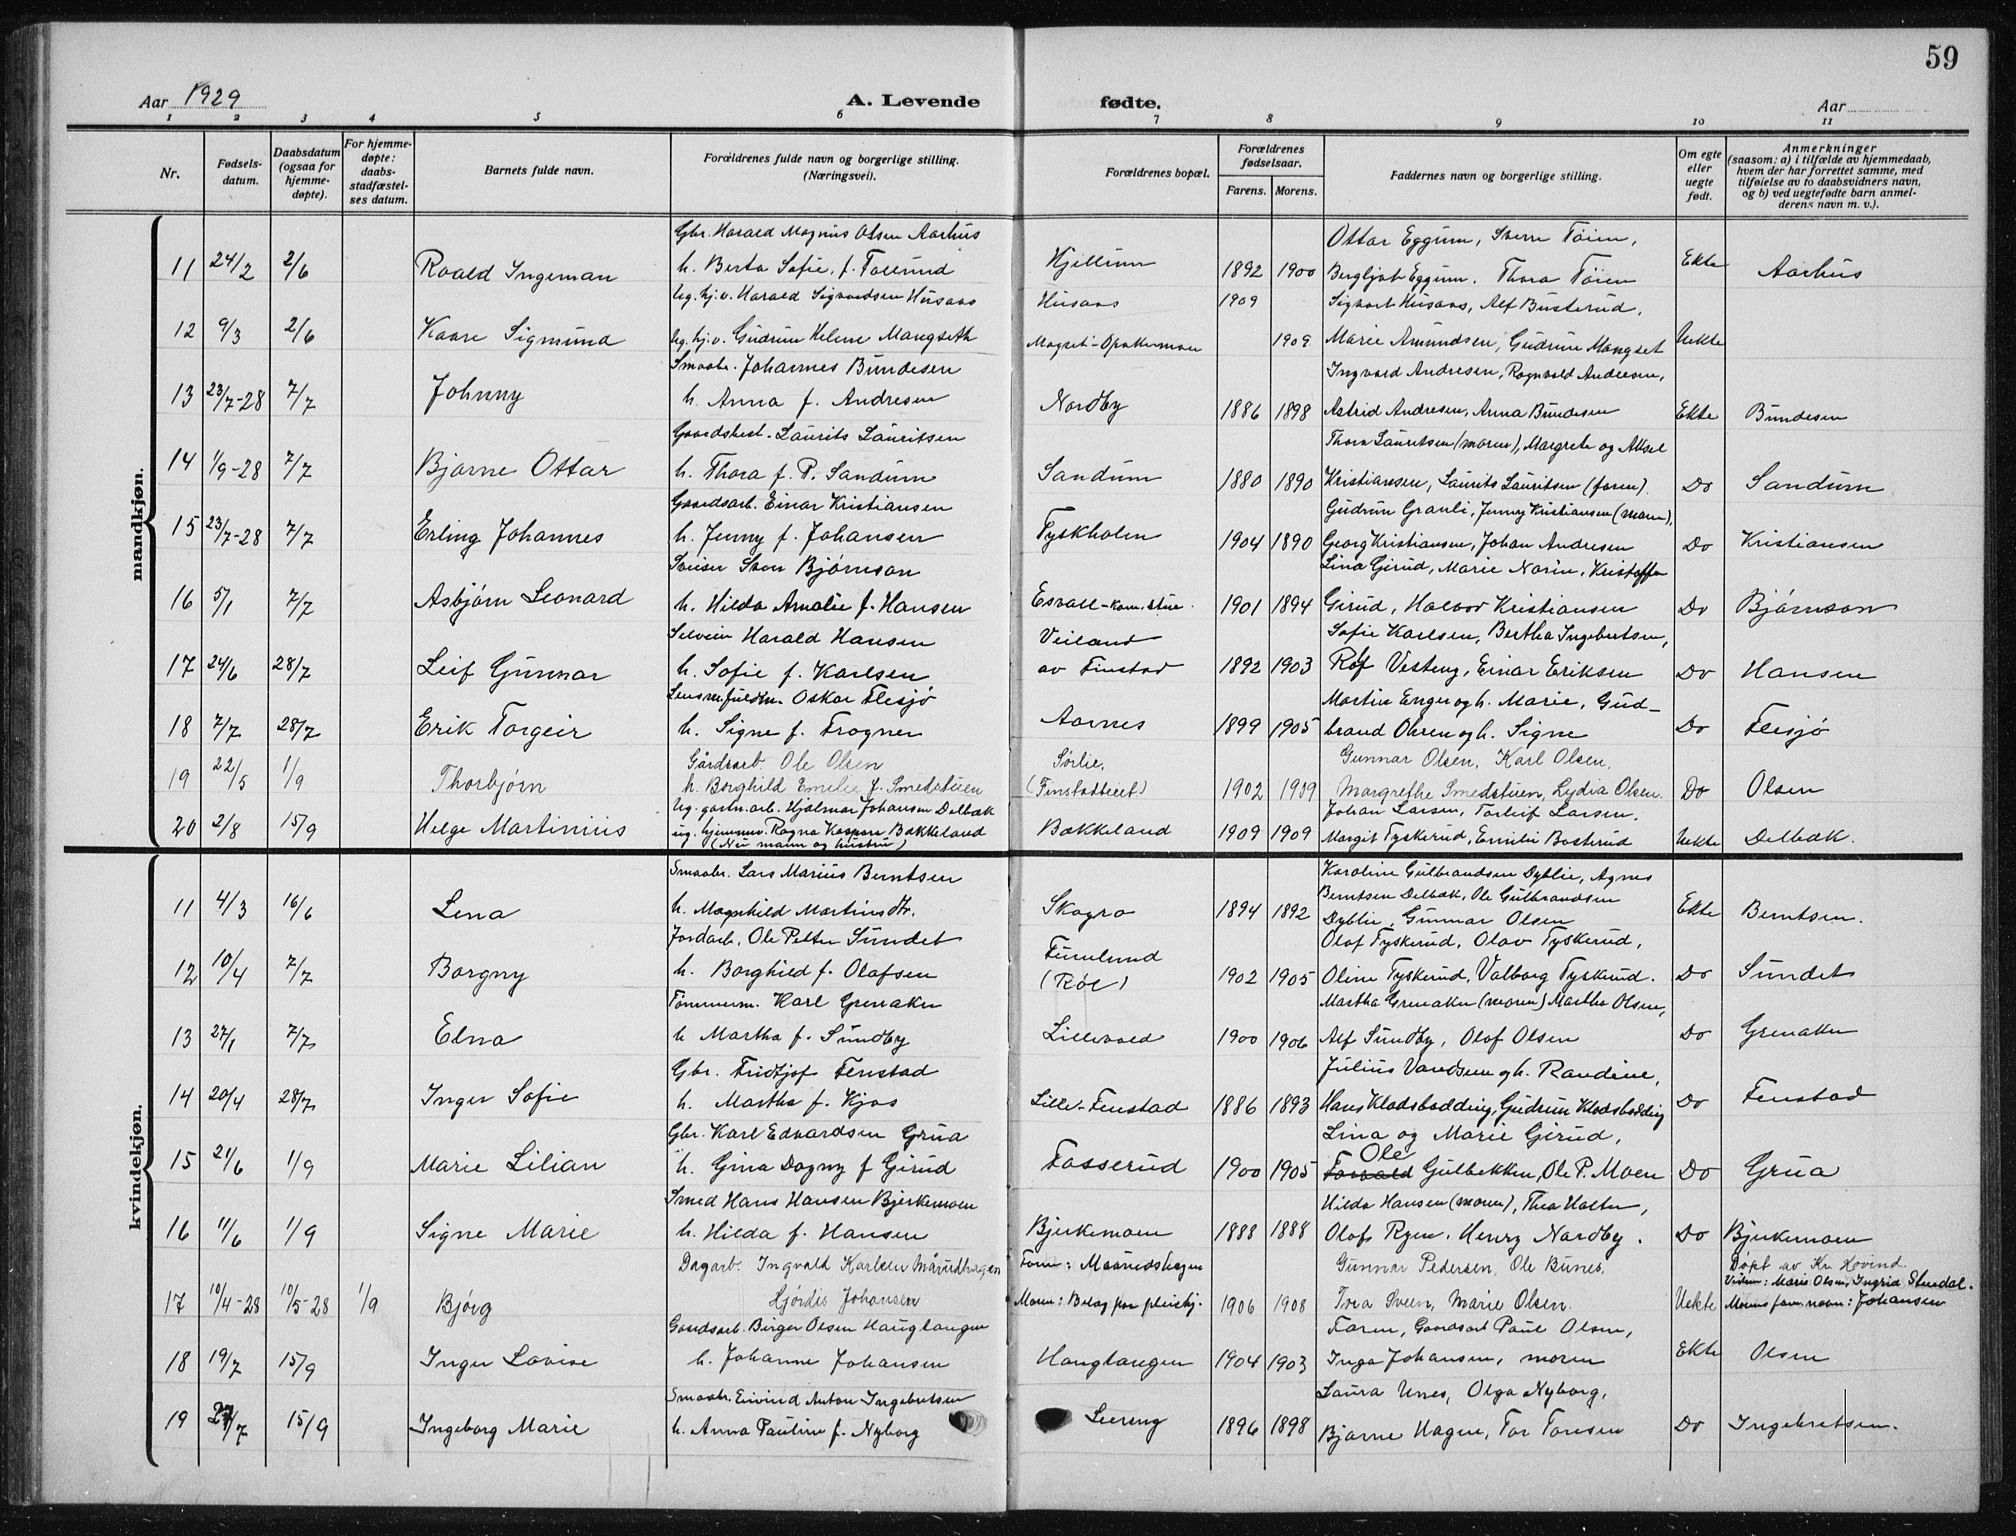 59
Aar 1929 A. Levende fødte. Aar
1 2 3 4 5 6 7 8 9 10 11
Nr. Fødsels-datum. Daabsdatum (ogsaa for hjemme-døpte). For hjemme-døpte: daabs-stadfæstel-ses datum. Barnets fulde navn. Forældrenes fulde navn og borgerlige stilling. (Næringsvei). Forældrenes bopæl. Forældrenes fødselsaar. Farens. Morens. Faddernes navn og borgerlige stilling. Om egte eller uegte født. Anmerkninger (saasom: a) i tilfælde av hjemmedaab, hvem der har forrettet samme, med tilføielse av to daabsvidners navn, og b) ved uegtefødte barn anmel-derens navn m. v.).
mandkjøn.
Gbr. Harald Magnus Olsen Aarhus Ottar Eggum, Sverre Töien,
11 24/2 2/6 Roald Ingeman h. Berta Sofie, f. Tollund Hjellum 1892 1900 Bergljot Eggum. Thora Töien Ekte Aarhus
Ug. hj.v. Harald Sigvardsen Husaas Husaas 1909 Sigvart Husaas, Alf Busterud,
12 9/3 2/6 Kaare Sigmund Ug. hj.v. Gudrun Helene Mangseth 1909 Marie Amundsen, Gudrun Mangset Uekte
Smaabr. Johannes Bundesen Ingvard Andresen, Ragnvald Andresen,
13 23/7-28 7/7 Johnny h. Anna f. Andresen Nordby 1886 1898 Astrid Andresen, Anna Bundesen Ekte Bundesen
Gaardsbest. Laurits Lauritsen Thora Lauritsen (moren), Margrete og Aksel
14 1/9-28 7/7 Bjarne Ottar h. Thora f. P. Sandum Sandum 1880 1890 Kristiansen, Laurits Lauritsen (faren). Do Sandum
Gaardsarb. Einar Kristiansen Gudrun Granli, Jenny Kristiansen (moren),
15 23/7-28 7/7 Erling Johannes h. Jenny f. Johansen Tyskholm 1904 1890 Georg Kristiansen, Johan Andresen Do Kristiansen
Sveiser Sven Bjørnson Lina Girud, Marie Noren, Kristoffer
16 5/1 7/7 Asbjørn Leonard h. Hilda Amalie f. Hansen 1901 1894 Girud, Halvor Kristiansen Do Bjørnson
Harald Hansen Veiland Sofie Karlsen, Bertha Ingebertsen,
17 24/6 28/7 Leif Gunnar h. Sofie f. Karlsen av Finstad 1892 1903 Rolf Vesteng, Einar Eriksen Do Hansen
Lensm.fuldm. Oskar Flesjø Martin Enger og h. Marie, Gud-
18 7/7 28/7 Erik Torgeir h. Signe f. Frogner Aarnes 1899 1905 brand Olsen og h. Signe Do Flesjø
Gårdsarb. Ole Olsen Sørlie, Gunnar Olsen, Karl Olsen,
19 22/5 1/9 Thorbjørn h. Borghild Emelie f. Smedstuen (Finstadteiet) 1902 1909 Margrethe Smedstuen, Lydia Olsen. Do Olsen
Ug. gaardsarb. Hjalmar Johansen Delbæk Johan Larsen, Torleif Larsen.
20 2/8 15/9 Helge Martinius ug. hjemmev. Ragna Kaspara Bakkeland Bakkeland 1909 1909 Margit Tyskerud, Emilie Bosterud Uekte Delbæk.
(Nu mann og hustru)
kvindekjøn.
Smaabr. Lars Marius Berntsen Karoline Gulbrandsen Dyblie, Agnes
Berntsen Delbæk, Ole Gulbrandsen
11 4/3 16/6 Lena h. Magnhild Martinsdtr. Skogro 1894 1892 Dyblie, Gunnar Olsen Ekte Berntsen.
Jordarb. Ole Petter Sundet Furulund Olaf Tyskerud, Olav Tyskerud,
12 10/4 7/7 Borgny h. Borghild f. Olafsen 1902 1905 Oline Tyskerud, Valborg Tyskerud. Do Sundet
Tømmerm. Karl Grenaker Martha Grenaker (moren) Martha Olsen,
13 27/1 7/7 Elna h Martha f. Sundby Lillevold 1900 1906 Alf Sundby, Olaf Olsen Do Grenaker
Gbr. Fridtjof Fenstad Julius Vandsem og h. Randine,
14 20/4 28/7 Inger Sofie h. Martha f. Kjos Lille-Fenstad 1886 1893 Hans Klodsbødding, Gudrun Klodsbødding Do Fenstad
Gbr. Karl Edvardsen Grua Lina og Marie Girud,
15 21/6 1/9 Marie Lilian h. Gina Dagny f Girud Fosserud 1900 1905 Ole Gulbekken, Ole P. Moen Do Grua
Smed Hans Hansen Bjerkemoen Hilda Hansen (moren), Thea Holter,
16 11/6 1/9 Signe Marie h. Hilda f. Hansen Bjerkemoen 1888 1888 Olaf Ryen. Henry Nordby. Do Bjerkemoen
Dagarb. Ingvald Karlsen Mårudhagen Faren: Maarudshagen Gunnar Pedersen, Ole Bunes. Døpt av Kr. Hovind.
Vidner: Marie Olsen, Ingrid Stuedal.
17 10/4-28 10/5-28 1/9 Bjørg Hjørdis Johansen 1906 1908 Svea Sveen, Marie Olsen. Uekte Morens fam.navn: Johansen
Gaardsarb. Birger Olsen Hauglangen Faren, Gaardsarb Paul Olsen,
18 19/7 15/9 Inger Lovise h. Johanne Johansen Hauglangen 1904 1903 Inga Johansen, moren Ekte Olsen
Smaabr. Eivind Anton Ingebretsen Laura Unes, Olga Nyborg,
19 15/9 Ingeborg Marie h. Anna Pauline f. Nyborg Seereng 1896 1898 Bjarne Hagen, Tor Toresen Do Ingebretsen.